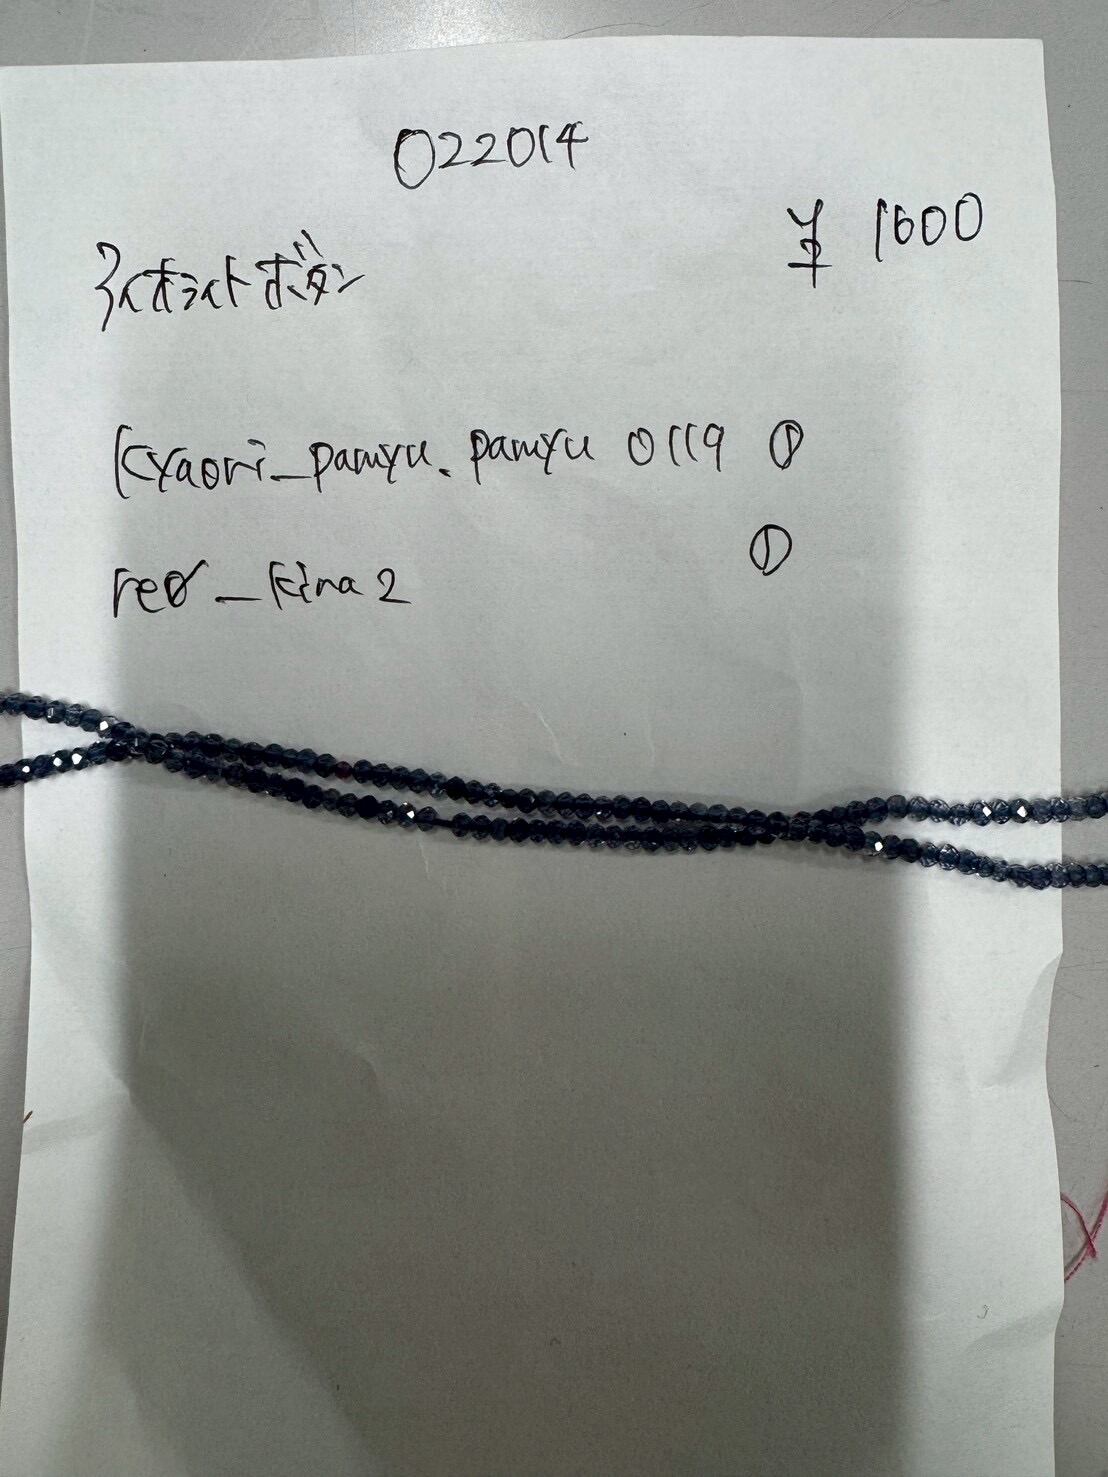 022014
¥ 1600
アイオライトボタン
kyaori_pamyu.pamyu 0119 ①
①
reo_kina2